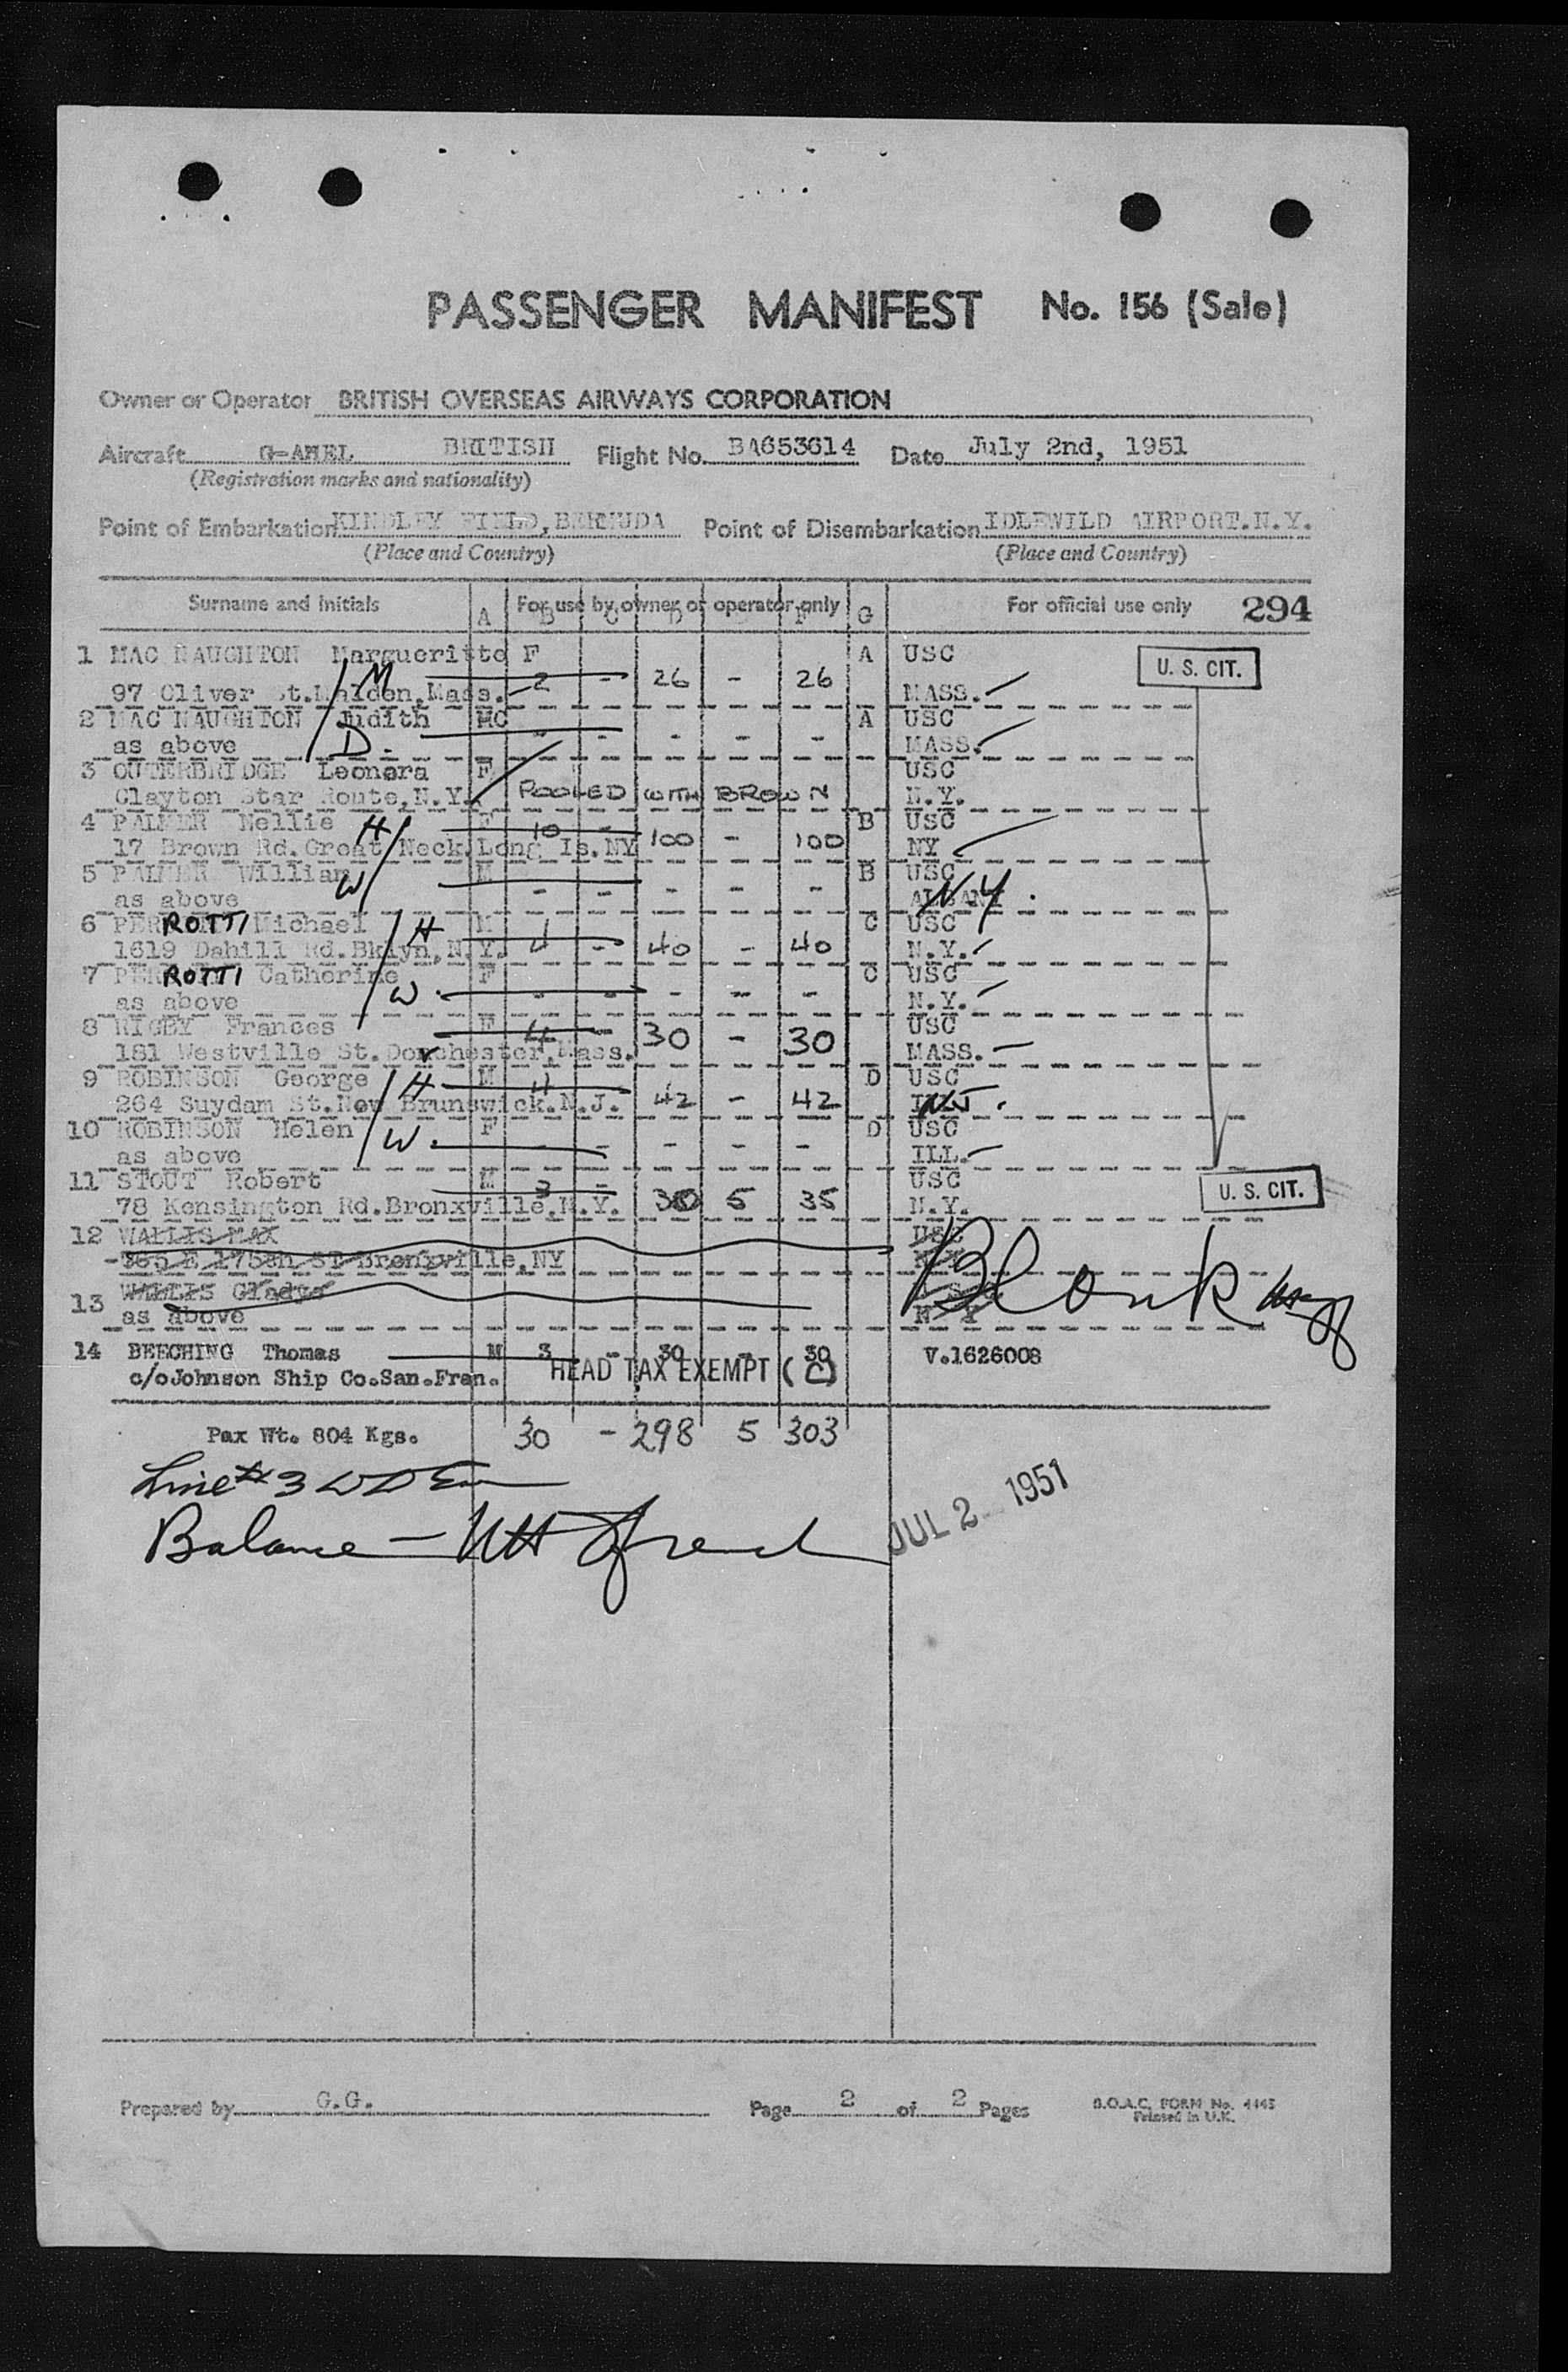 PASSENGER MANIFEST No. 156 (Sale)
Owner or Operator BRITISH OVERSEAS AIRWAYS CORPORATION
Aircraft G-AHEL BRITISH Flight No. BA653614 Date July 2nd, 1951
(Registration marks and nationality)
Point of Embarkation KINDLEY FIELD, BERMUDA Point of Disembarkation IDLEWILD AIRPORT.N.Y.
(Place and Country) (Place and Country)
Surname and Initials For use by owner or operator only For official use only 294
A B C D F G
1 MAC NAUGHTON Margueritte F A USC U. S. CIT.
97 Oliver St.Malden,Mass. M 2 - 26 - 26 MASS.
2 MAC NAUGHTON Judith MC A USC
as above D. - - - - - MASS.
3 OUTERBRIDGE Leonora F USC
Clayton Star Route,N.Y. POOLED WITH BROWN N.Y.
4 PALMER Nellie H F 10 - B USC
17 Brown Rd.Great Neck,Long Is.NY 100 - 100 NY
5 PALMER William W M B USC
as above - - - - - ALBANY NY.
6 PERROTTI Michael H M C USC
1619 Dahill Rd.Bklyn,N.Y. 4 - 40 - 40 N.Y.
7 PERROTTI Catherine F C USC
as above W. - - - - - N.Y.
8 RIGBY Frances F 4 - 30 - 30 USC
181 Westville St.Dorchester,Mass. MASS.
9 ROBINSON George H M 4 D USC
264 Suydam St.New Brunswick.N.J. 42 - 42 NJ.
10 ROBINSON Helen W. F D USC
as above - - - - ILL.
11 STOUT Robert M 3 - USC
78 Kensington Rd.Bronxville,N.Y. 30 5 35 N.Y. U. S. CIT.
12 WALLIS MAX USC
365 E 175th ST Bronxville,NY
Blank
13 WALLIS Gladys
as above N Y
14 BEECHING Thomas M 3 - 30 - 30 V.1626008
c/oJohnson Ship Co.San.Fran. HEAD TAX EXEMPT (C)
Pax Wt. 804 Kgs. 30 - 298 5 303
Line #3 WD
Balance
JUL 2 1951
Prepared by G.G. Page 2 of 2 Pages B.O.A.C. FORM No. 4445
Printed in U.K.